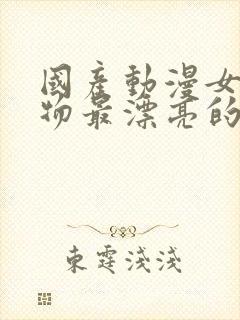 國產動漫女
物最漂亮的
東霆淺淺